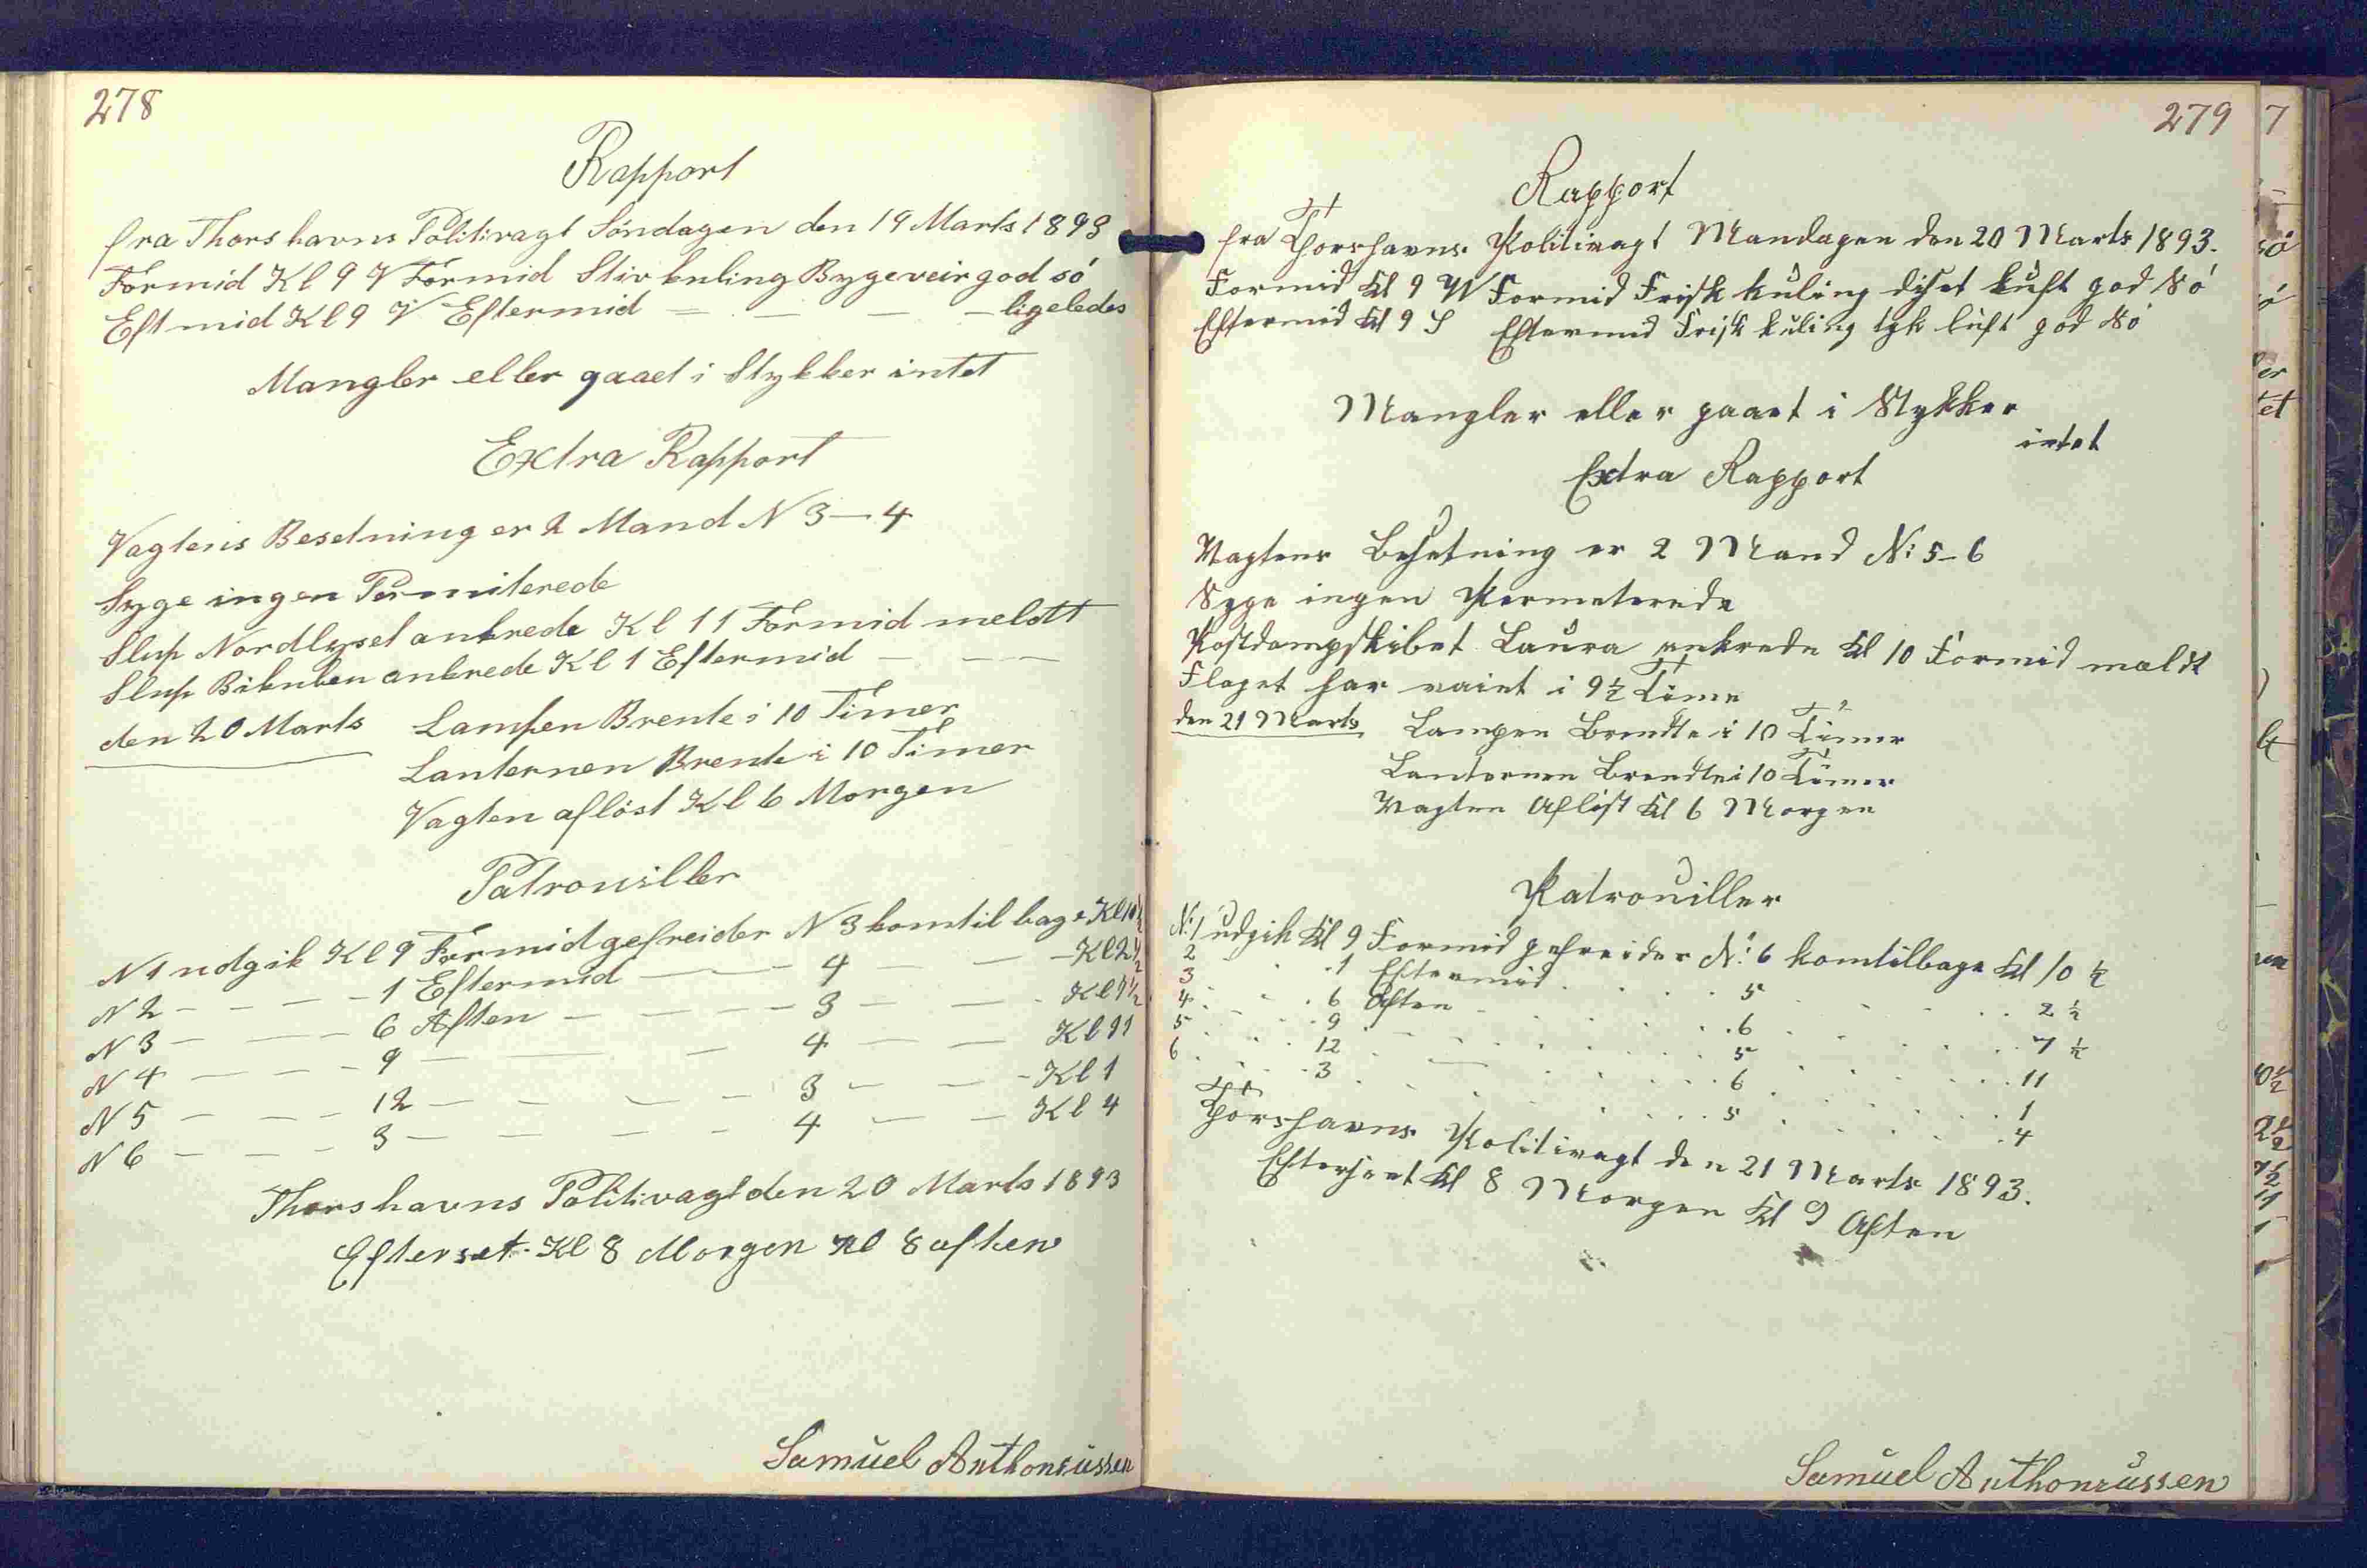 278
Rapport
fra Thorshavns Politivagt Söndagen den 19 Marts 1893
Formid Kl 9 V Formid Stiv kuling Bygeveir god só
Eftmid Kl 9 V Eftermid = — — — ligeledes
Mangler eller gaaet i Stykker intet
Extra Rapport
Vagtens Besetning er 2 Mand N 3—4
Syge ingen Permiterede
Slup Nordlyset ankrede Kl 11 Formid meldtt
Slup Bikuben ankrede Kl 1 Eftermid — — —
den 20 Marts Lampen Brente i 10 Timer
Lanternen Brente i 10 Timer
Vagten aflöst Kl 6 Morgen
Patrouiller
N 1 udgik Kl 9 Formid gefreider N 3 komtilbage Kl 10½
N 2 — — — 1 Eftermid — — 4 — — Kl 2½
N 3 — — — 6 Aften — — — 3 — — Kl 7½
N 4 — — — 9 — — — 4 — — Kl 11
N 5 — — — 12 — — — — 3 — — Kl 1
N 6 — — — 3 — — — — 4 — — Kl 4
Thorshavns Politivagt den 20 Marts 1893
Efterset Kl 8 Morgen Kl 8 aften
Samuel Anthoniussen
279
Rapport
fra Thorshavns Politivagt Mandagen den 20 Marts 1893.
Formid Kl 9 W Formid Frisk kuling diset luft god Só
Eftermid Kl 9 S Eftermid Frisk kuling tyk luft god Só
Mangler eller gaaet i Stykker
intet
Extra Rapport
Vagtens Besetning er 2 Mand N: 5-6
Syge ingen Permeterede
Postdampskibet Laura ankrede Kl 10 Formid meldt
Flaget har vaiet i 9½ Time
den 21 Marts Lampen Brendte i 10 Timer
Lanternen Brendte i 10 Timer
Vagten Aflöst Kl 6 Morgen
Patrouiller
N: 1 udgik Kl 9 Formid gefreider N: 6 komtilbage Kl 10 ½
2 . . 1 Eftermid . . . 5 . . . 2 ½
3 . . 6 Aften . . . 6 . . . 7 ½
4 . . 9 . . . 5 . . . 11
5 . . 12 . . . 6 . . . 1
6 . . 3 . . . 5 . . . 4
Thorshavns Politivagt den 21 Marts 1893.
Efterseet Kl 8 Morgen Kl 9 Aften
Samuel Anthoniussen